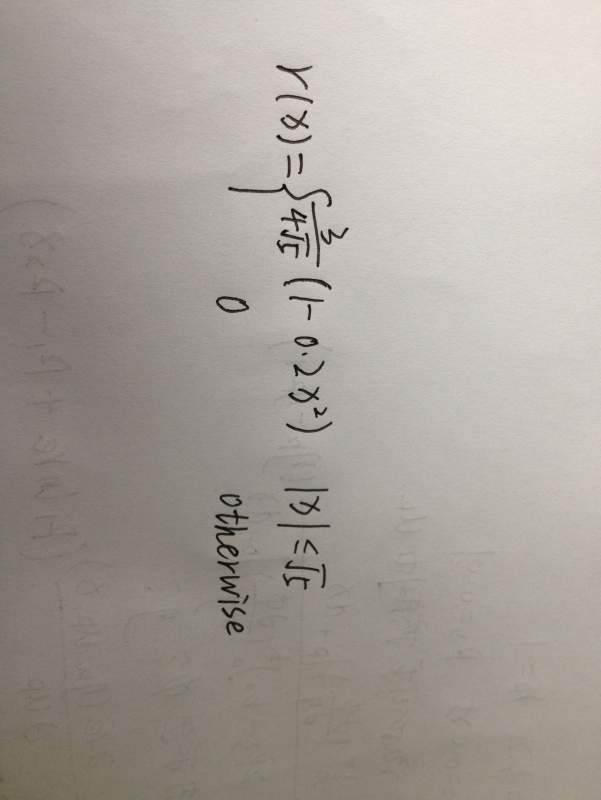 r(x) = { 3/4√5 (1 - 0.2x²) |x| ≤ √5
0 otherwise